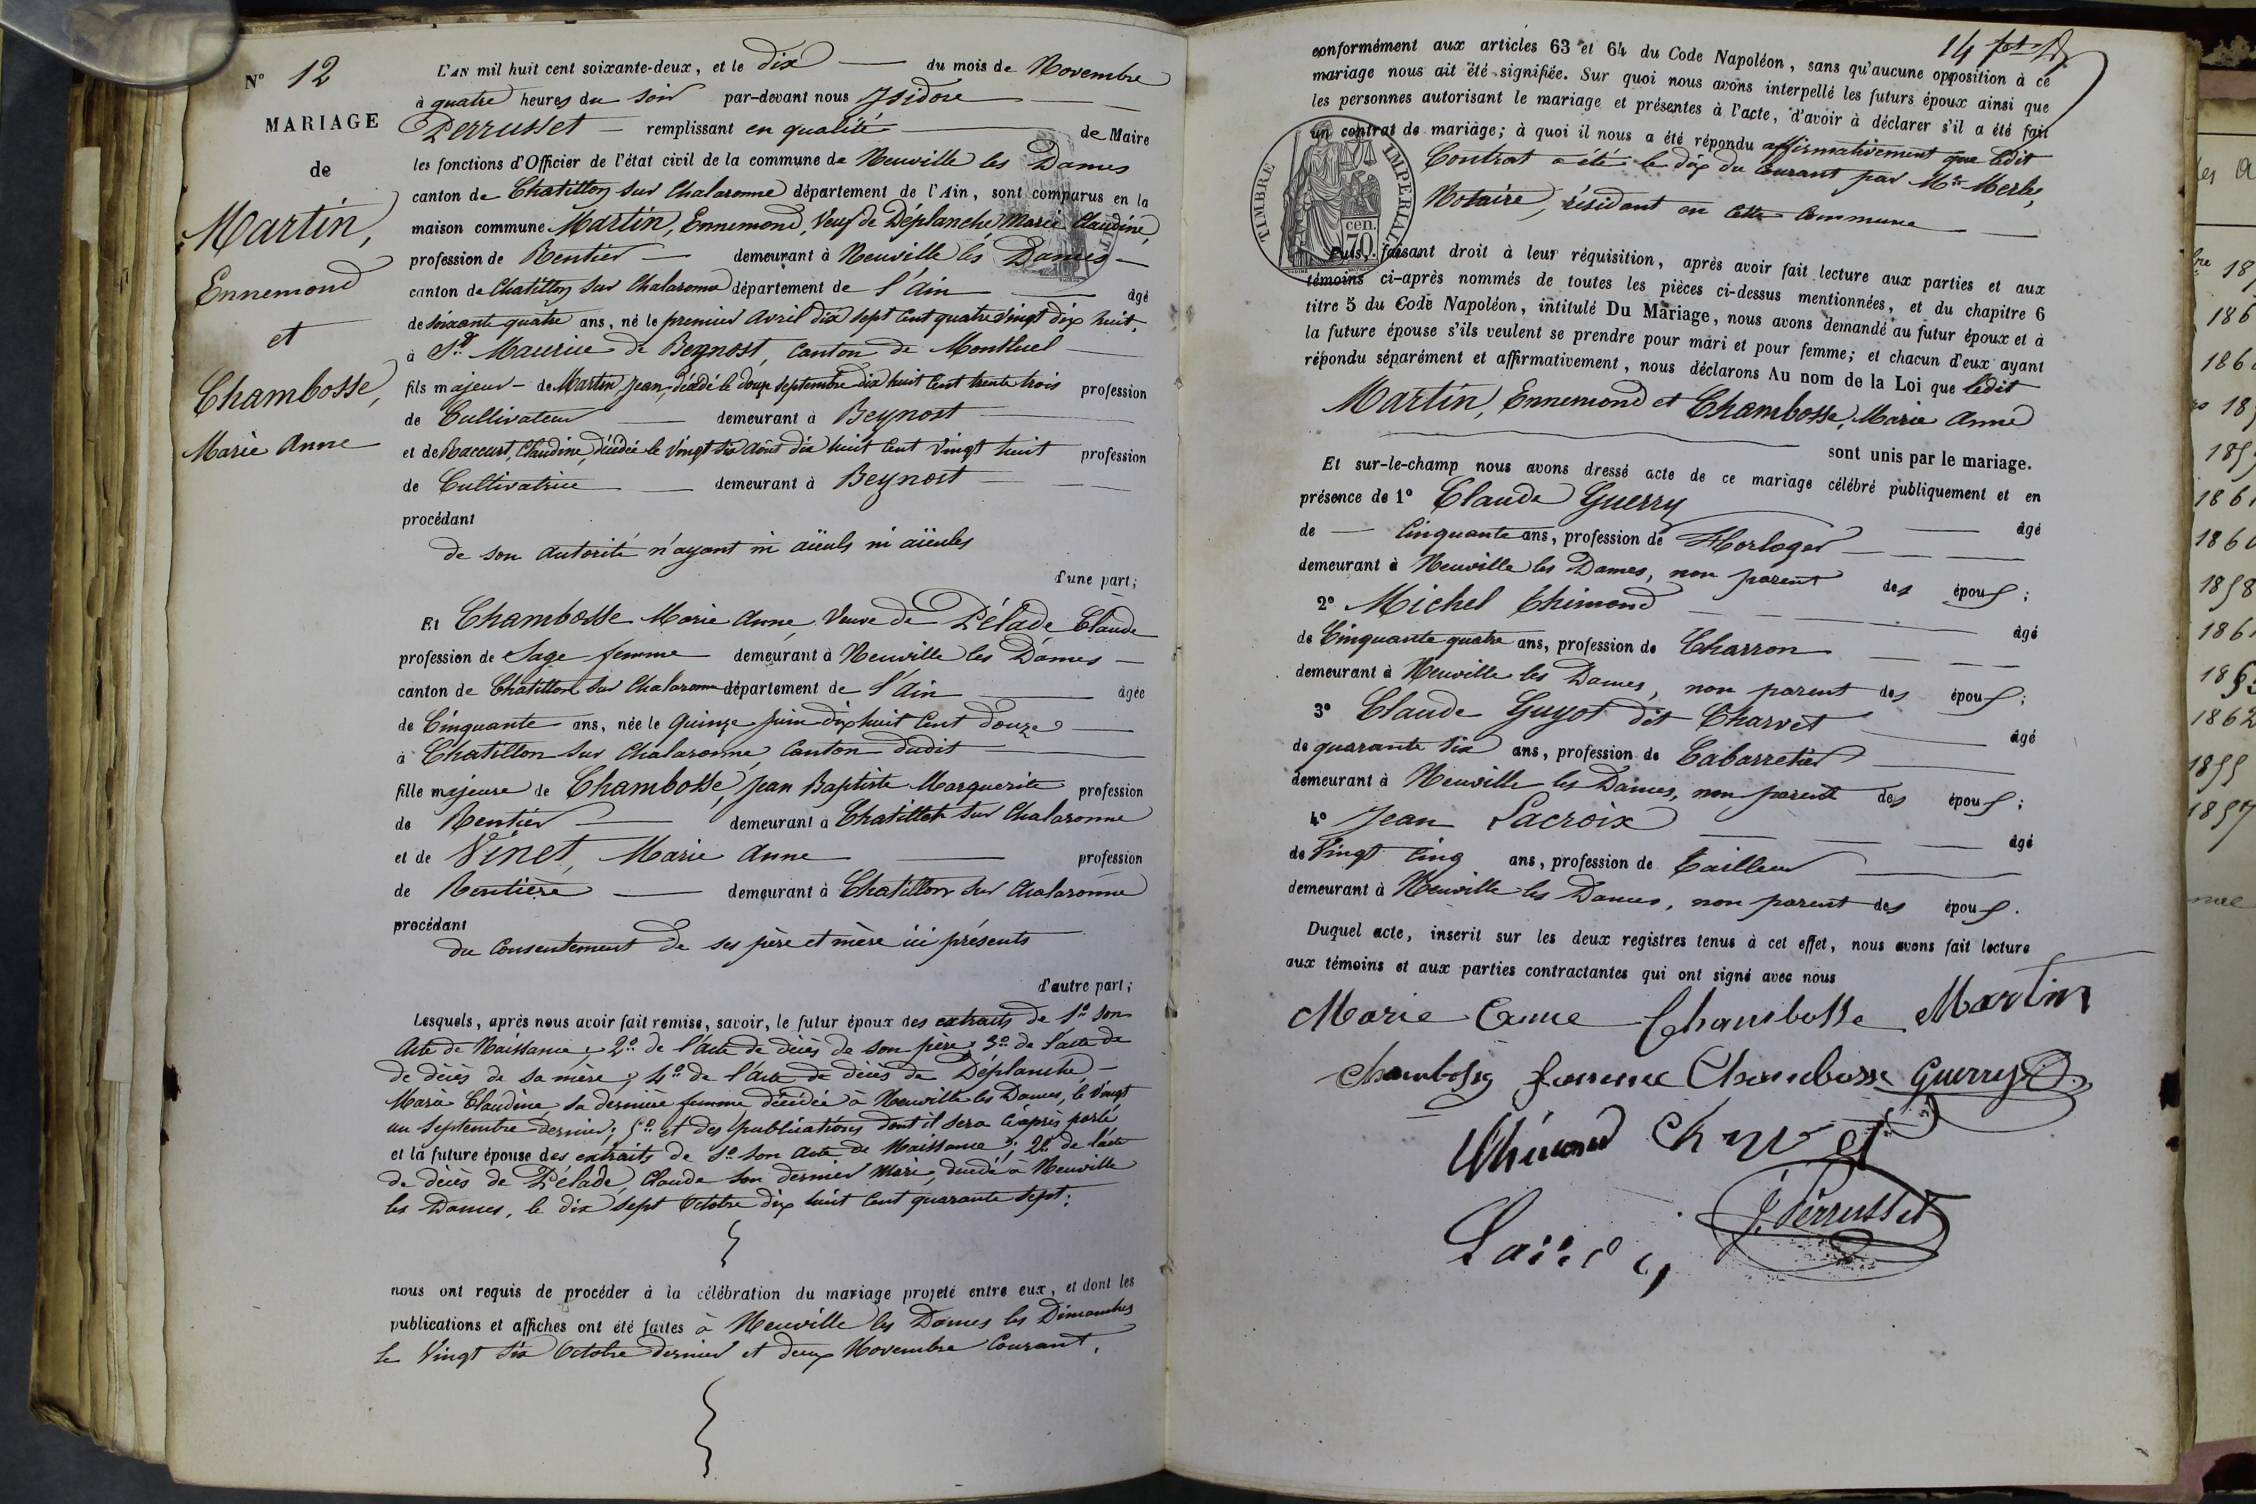 N° 12
MARIAGE
de
Martin,
Ennemond
et
Chambosse,
Marie Anne
L'AN mil huit cent soixante-deux, et le dix du mois de Novembre
à quatre heures du soir par-devant nous Isidore
Perrusset remplissant en qualité de Maire
les fonctions d'Officier de l'état civil de la commune de Neuville les Dames
canton de Chatillon sur Chalaronne département de l'Ain, sont comparus en la
maison commune Martin, Ennemond, Veuf de Déplanche, Marie Claudine,
profession de Rentier demeurant à Neuville les Dames
canton de Chatillon sur Chalaronne département de l'ain âgé
de soixante quatre ans, né le premier avril dix sept cent quatre vingt dix huit
à St Maurice de Beynost, canton de Montluel
fils majeur de Martin, Jean, décédé le douze septembre dix huit cent trente trois profession
de Cultivateur demeurant à Beynost
et de Raccurt, Claudine, décédée le vingt six août dix huit cent vingt huit profession
de Cultivatrice demeurant à Beynost
procédant
de son autorité n'ayant ni aïeuls ni aïeules
d'une part;
Et Chambosse Marie Anne, Veuve de Pélade Claude
profession de Sage femme demeurant à Neuville les Dames
canton de Chatillon sur Chalaronne département de l'ain âgée
de Cinquante ans, née le quinze juin dix huit cent douze
à Chatillon sur Chalaronne, canton dudit
fille majeure de Chambosse, Jean Baptiste Marguerite profession
de Rentier demeurant à Chatillon sur Chalaronne
et de Vinet, Marie Anne profession
de Rentière demeurant à Chatillon sur Chalaronne
procédant
du consentement de ses père et mère ici présents
d'autre part;
Lesquels, après nous avoir fait remise, savoir, le futur époux des extraits de 1° son
acte de Naissance; 2° de l'acte de décès de son père; 3° de l'acte de
de décès de sa mère; 4° de l'acte de décès de Déplanche
Marie Claudine, sa dernière femme, décédée à Neuville les Dames, le vingt
un septembre dernier; 5° et des publications dont il sera ci après parlé
et la future épouse des extraits de 1° son acte de Naissance; 2° de l'acte
de décès de Pélade, Claude son dernier mari, décédé à Neuville
les Dames, le dix sept octobre dix huit cent quarante sept;
nous ont requis de procéder à la célébration du mariage projeté entre eux, et dont les
publications et affiches ont été faites à Neuville les Dames les Dimanches
le vingt six octobre dernier et deux Novembre courant,
14
conformément aux articles 63 et 64 du Code Napoléon, sans qu'aucune opposition à ce
mariage nous ait été signifiée. Sur quoi nous avons interpellé les futurs époux ainsi que
les personnes autorisant le mariage et présentes à l'acte, d'avoir à déclarer s'il a été fait
un contrat de mariage; à quoi il nous a été répondu affirmativement que ledit
Contrat a été le dix du courant par Me Merle,
Notaire, résidant en cette commune
TIMBRE IMPERIAL
70 cen.
Puis, faisant droit à leur réquisition, après avoir fait lecture aux parties et aux
témoins ci-après nommés de toutes les pièces ci-dessus mentionnées, et du chapitre 6
titre 5 du Code Napoléon, intitulé Du Mariage, nous avons demandé au futur époux et à
la future épouse s'ils veulent se prendre pour mari et pour femme; et chacun d'eux ayant
répondu séparément et affirmativement, nous déclarons Au nom de la Loi que ledit
Martin, Ennemond et Chambosse, Marie Anne
sont unis par le mariage.
Et sur-le-champ nous avons dressé acte de ce mariage célébré publiquement et en
présence de 1° Claude Guerry
de Cinquante ans, profession de Horloger âgé
demeurant à Neuville les Dames, non parent des époux;
2° Michel Thimond
de Cinquante quatre ans, profession de Charron âgé
demeurant à Neuville les Dames, non parent des époux;
3° Claude Guyot dit Charvet
de quarante six ans, profession de Cabarretier âgé
demeurant à Neuville les Dames, non parent des époux;
4° Jean Lacroix
de Vingt cinq ans, profession de Tailleur âgé
demeurant à Neuville les Dames, non parent des époux.
Duquel acte, inscrit sur les deux registres tenus à cet effet, nous avons fait lecture
aux témoins et aux parties contractantes qui ont signé avec nous
Marie Anne Chambosse Martin
Chambosse femme Chambosse Guerry
Thimond Charvet
J. Perrusset